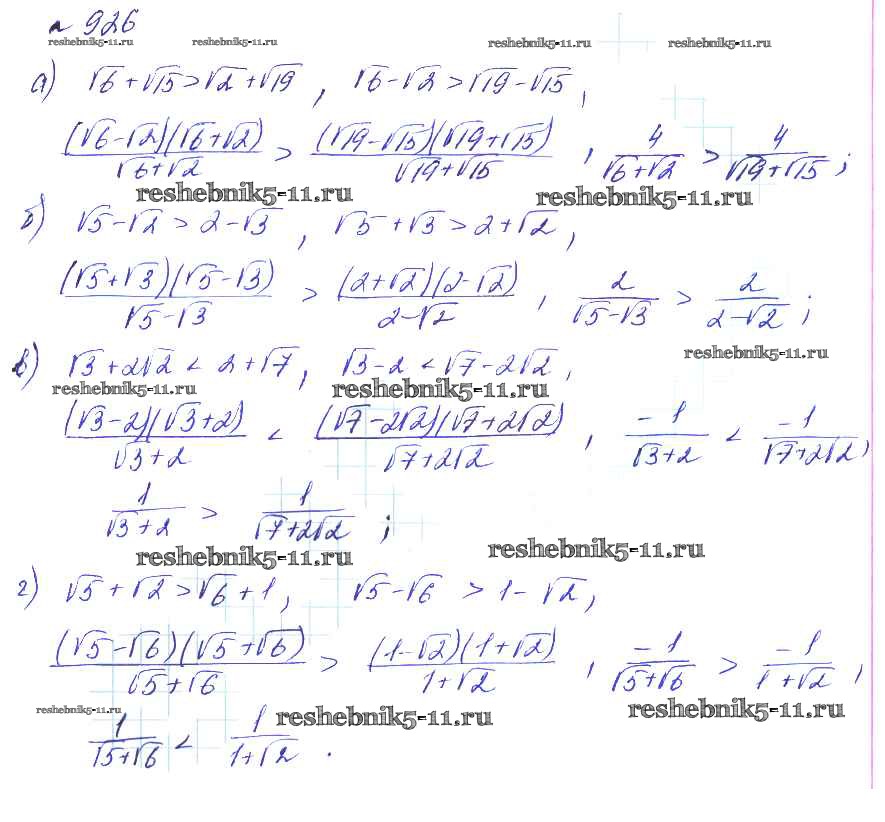 № 926
reshebnik5-11.ru reshebnik5-11.ru reshebnik5-11.ru reshebnik5-11.ru
а) √6 + √15 > √2 + √19, √6 - √2 > √19 - √15,
(√6-√2)(√6+√2)/(√6+√2) > (√19-√15)(√19+√15)/(√19+√15), 4/(√6+√2) > 4/(√19+√15);
reshebnik5-11.ru reshebnik5-11.ru
б) √5-√2 > 2-√3, √5+√3 > 2+√2,
(√5+√3)(√5-√3)/(√5-√3) > (2+√2)(2-√2)/(2-√2), 2/(√5-√3) > 2/(2-√2);
reshebnik5-11.ru
в) √3+2√2 < 2+√7, √3-2 < √7-2√2,
reshebnik5-11.ru reshebnik5-11.ru
(√3-2)(√3+2)/(√3+2) < (√7-2√2)(√7+2√2)/(√7+2√2), -1/(√3+2) < -1/(√7+2√2),
1/(√3+2) > 1/(√7+2√2);
reshebnik5-11.ru reshebnik5-11.ru
г) √5+√2 > √6+1, √5-√6 > 1-√2,
(√5-√6)(√5+√6)/(√5+√6) > (1-√2)(1+√2)/(1+√2), -1/(√5+√6) > -1/(1+√2),
reshebnik5-11.ru reshebnik5-11.ru reshebnik5-11.ru
1/(√5+√6) < 1/(1+√2).